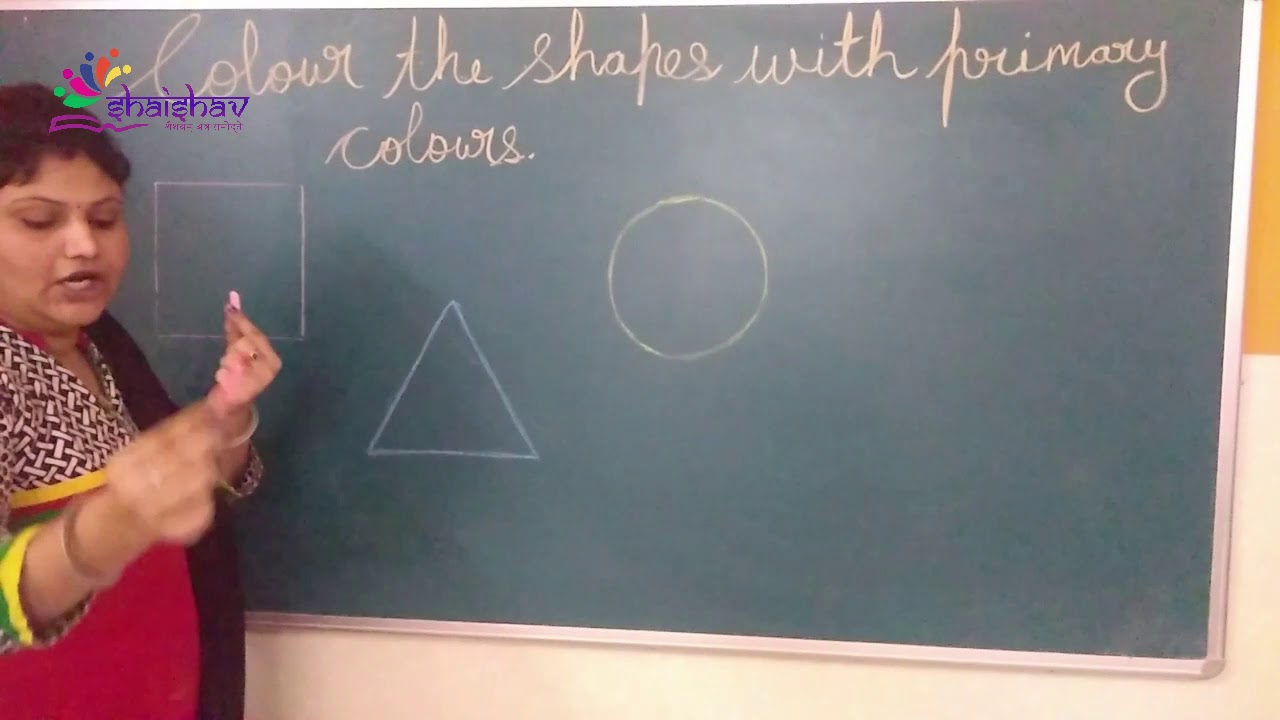 Colour the shapes with primary
colours.
shaishav